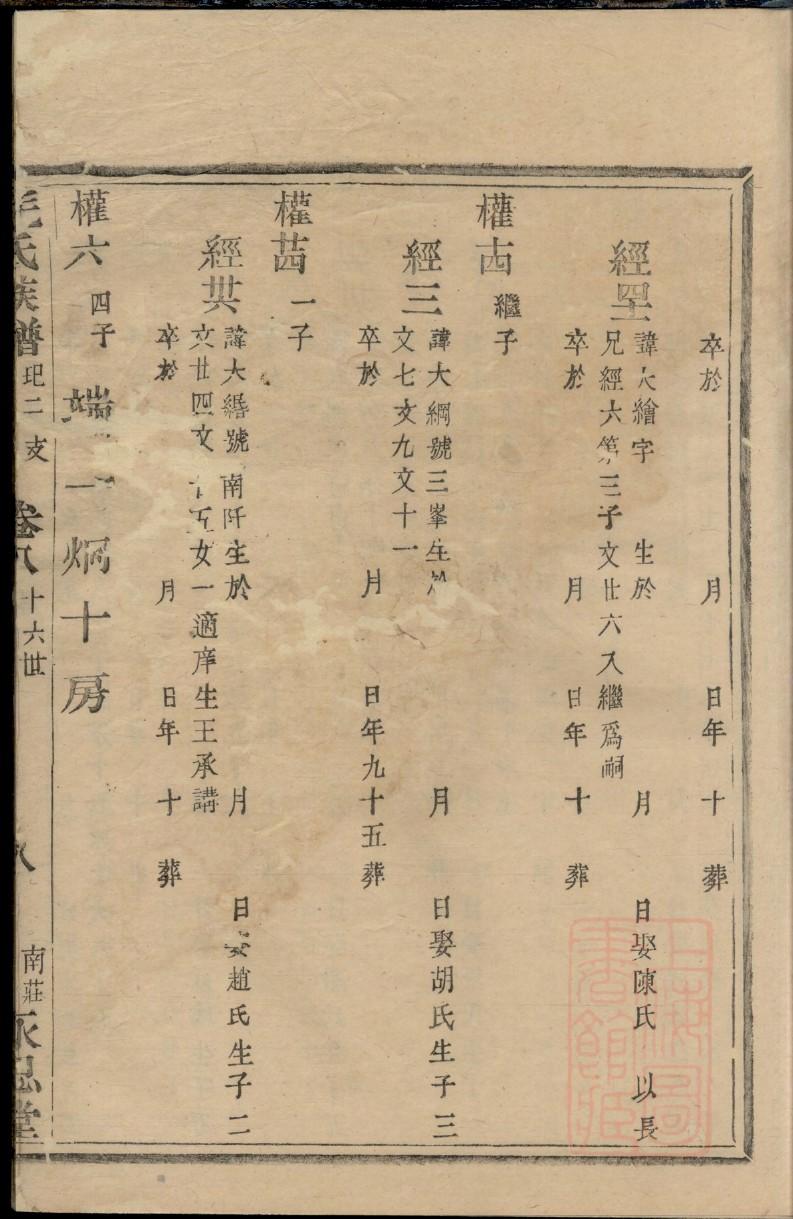 卒於 月 日年 十 葬
經
諱大繪字 生於 月 日娶陳氏 以長
兄經六第三子文廿六入繼為嗣
卒於 月 日年 十 葬
權
繼子
經三
諱大綱號三峯生於 月 日娶胡氏生子三
文七文九文十一
卒於 月 日年九十五葬
權
一子
經
諱大緡號南阡生於 月 日娶趙氏生子二
文廿四文 十五女一適庠生王承講
卒於 月 日年 十 葬
權六 四子 端一炯十房
毛氏族譜 玘二 支 卷八 十六世 八 南莊永思堂
上海圖書館藏